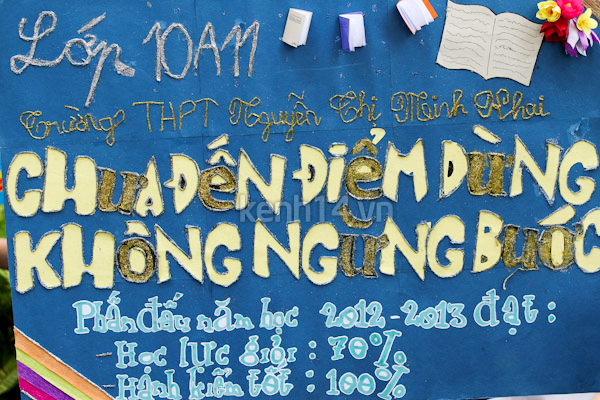 Lớp 10A11
Trường THPT Nguyễn Thị Minh Khai
CHƯA ĐẾN ĐIỂM DỪNG
kenh14.vn
KHÔNG NGỪNG BƯỚC
Phấn đấu năm học 2012-2013 đạt :
Học lực giỏi : 70%
Hạnh kiểm tốt : 100%